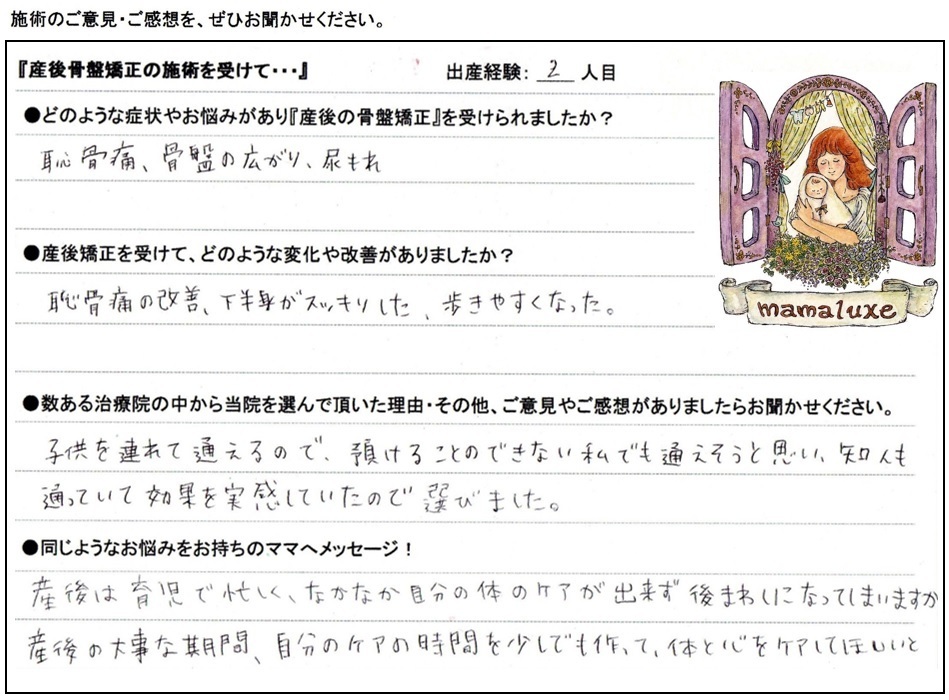 施術のご意見・ご感想を、ぜひお聞かせください。
『産後骨盤矯正の施術を受けて・・・』 出産経験：2人目
●どのような症状やお悩みがあり『産後の骨盤矯正』を受けられましたか？
恥骨痛、骨盤の広がり、尿もれ
●産後矯正を受けて、どのような変化や改善がありましたか？
恥骨痛の改善、下半身がスッキリした、歩きやすくなった。
mamaluxe
●数ある治療院の中から当院を選んで頂いた理由・その他、ご意見やご感想がありましたらお聞かせください。
子供を連れて通えるので、預けることのできない私でも通えそうと思い、知人も
通っていて効果を実感していたので選びました。
●同じようなお悩みをお持ちのママへメッセージ！
産後は育児で忙しく、なかなか自分の体のケアが出来ず後まわしになってしまいますか
産後の大事な期間、自分のケアの時間を少しでも作って、体と心をケアしてほしいと